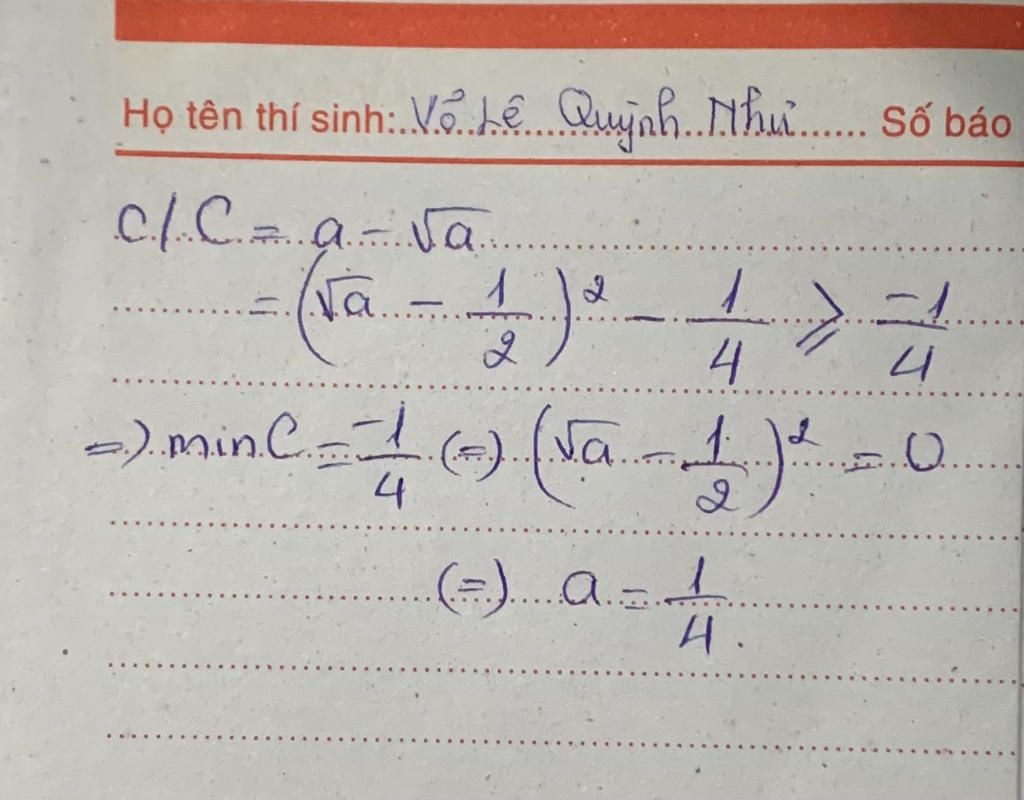 Họ tên thí sinh: Võ Lê Quỳnh Như Số báo
c/ C = a - √a
= (√a - 1/2)² - 1/4 ⩾ -1/4
=) min C = -1/4 (=) (√a - 1/2)² = 0
(=) a = 1/4.